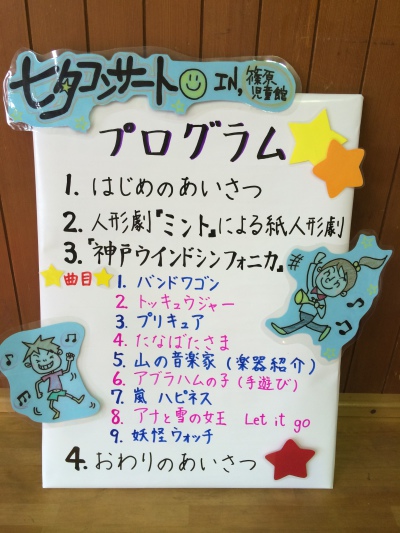 七夕コンサート IN, 篠原児童館
プログラム
1. はじめのあいさつ
2. 人形劇『ミント』による紙人形劇
3.『神戸ウインドシンフォニカ』
曲目
1. バンドワゴン
2. トッキュウジャー
3. プリキュア
4. たなばたさま
5. 山の音楽家(楽器紹介)
6. アブラハムの子(手遊び)
7. 嵐 ハピネス
8. アナと雪の女王 Let it go
9. 妖怪ウォッチ
4. おわりのあいさつ